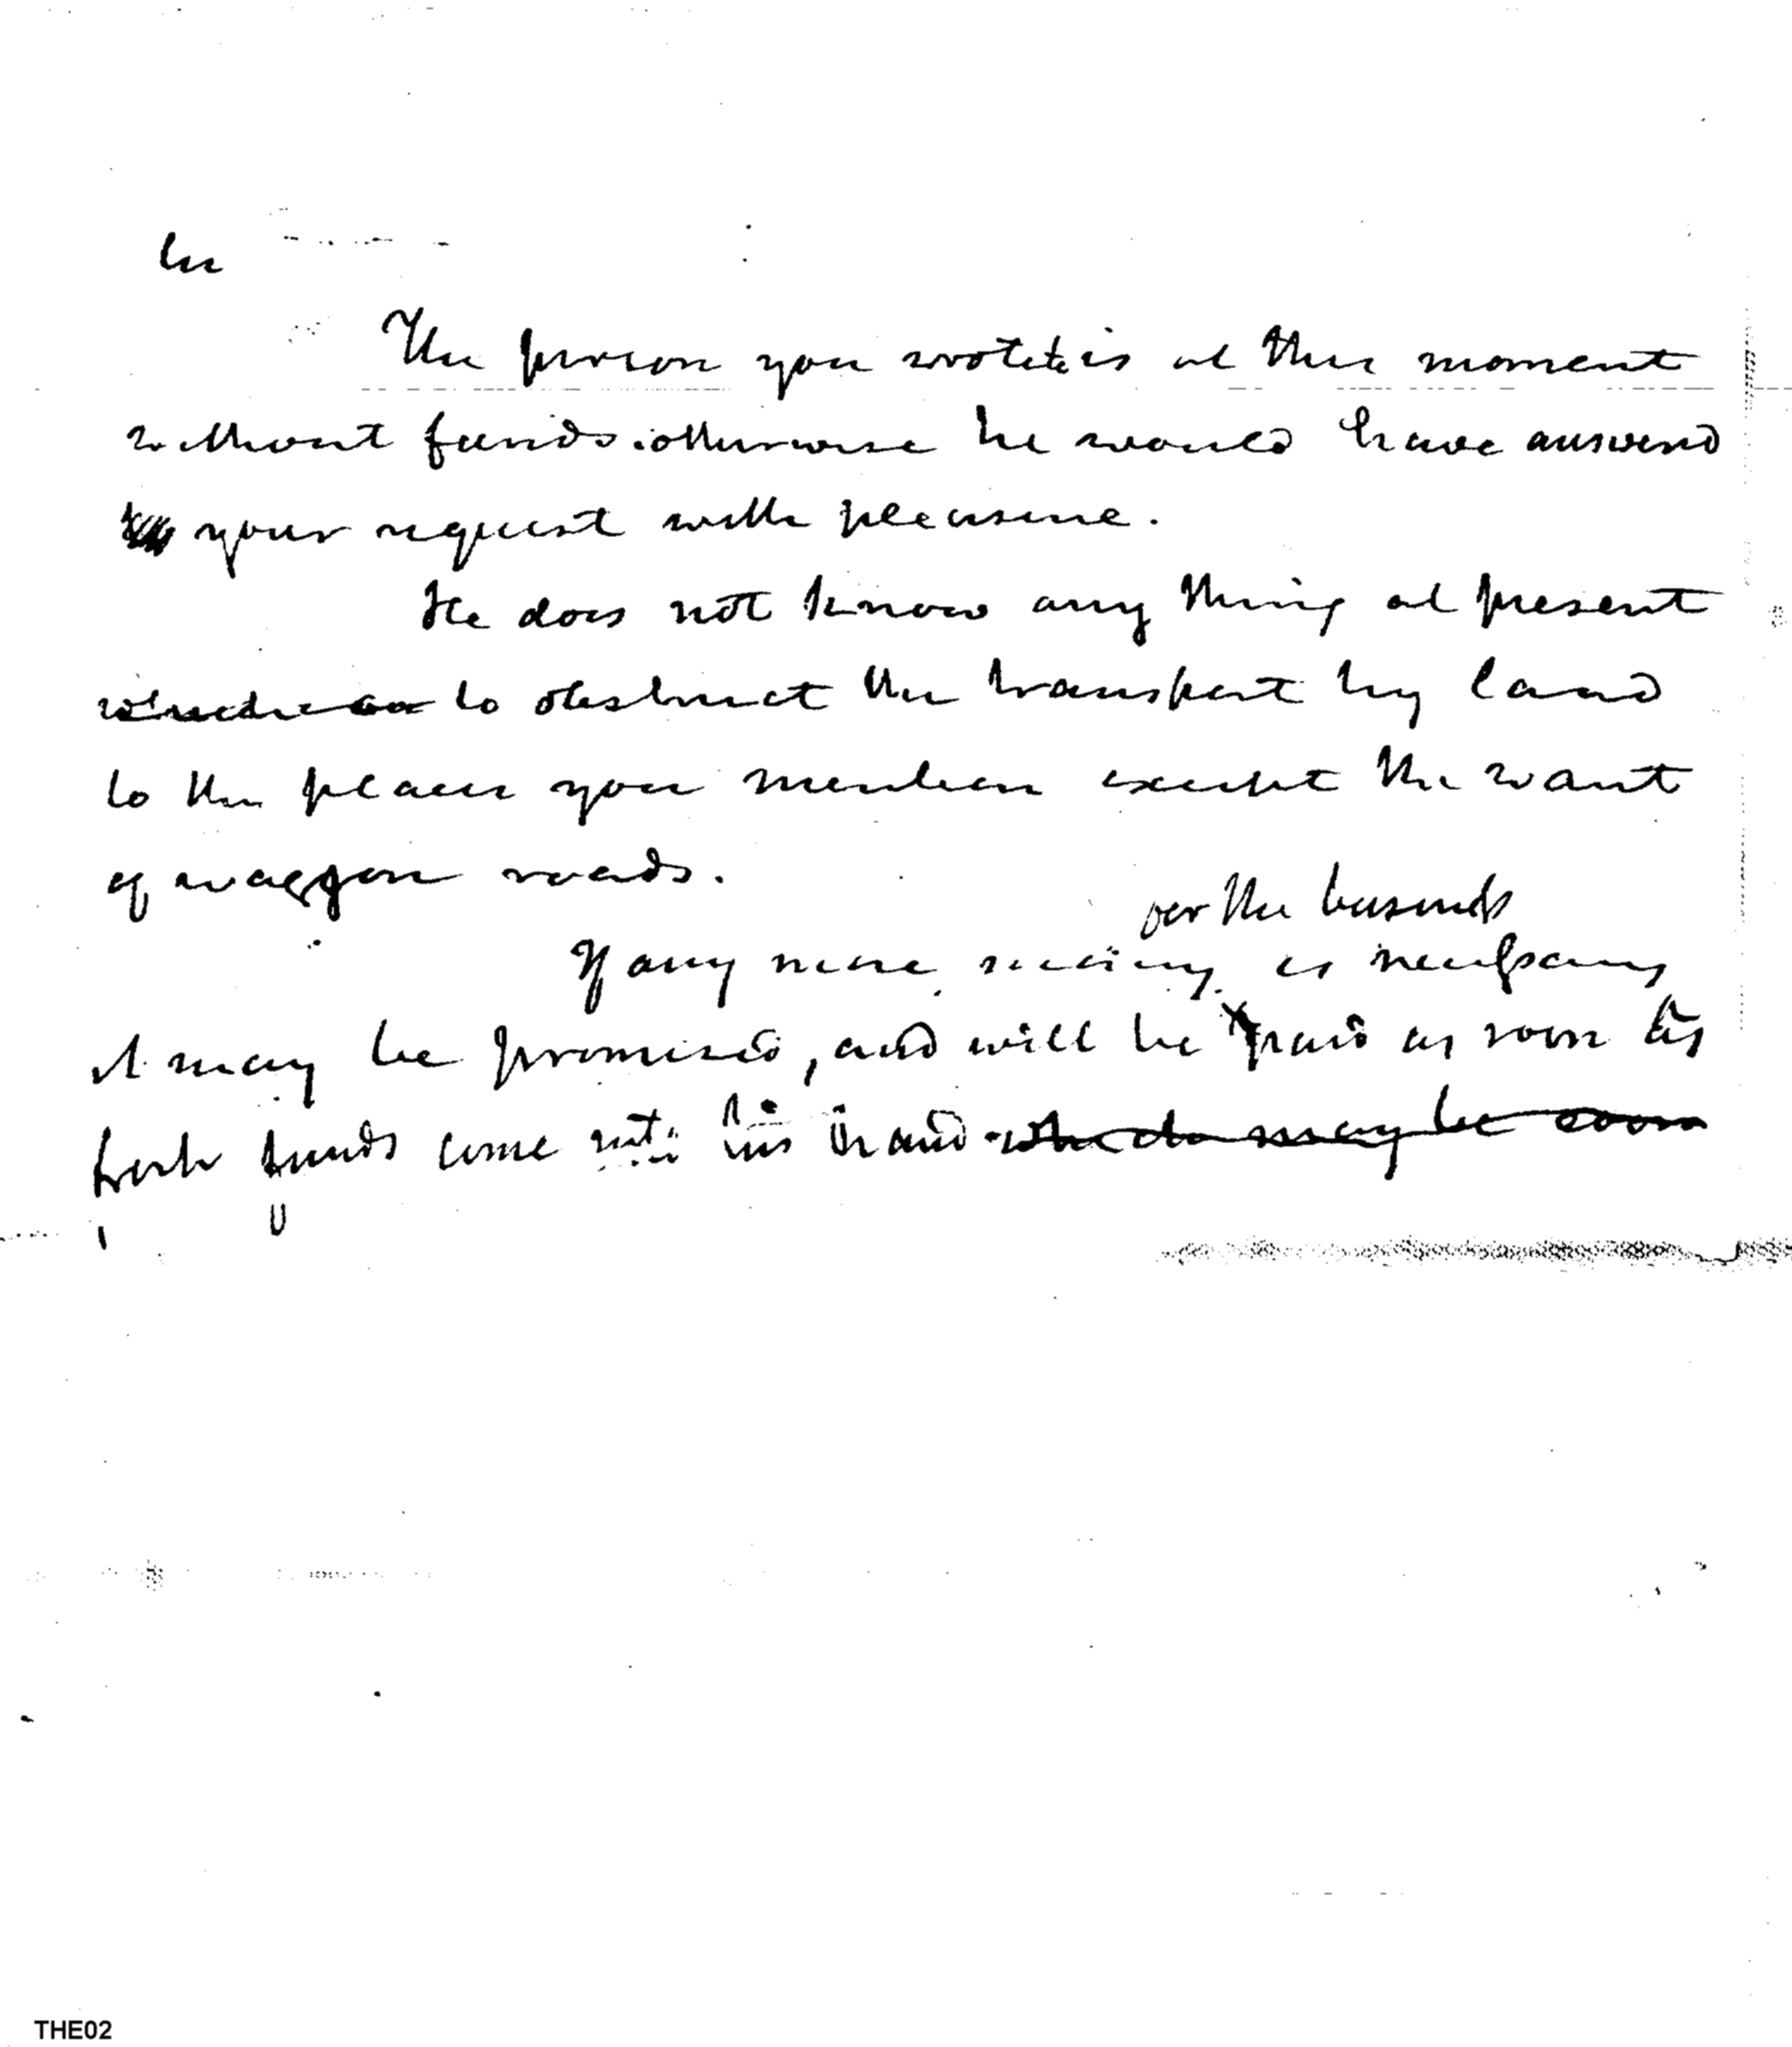 The person you wrote to is at this moment
without funds: otherwise he would have answerd
your request with pleasure.
He does not know any thing at present
which can to obstruct the transport by land
to the place you mention except the want
of waggon roads.
for the business
If any more money is necessary
it may be promised, and will be paid as soon as
fresh funds come into his hand which may be soon
THE02